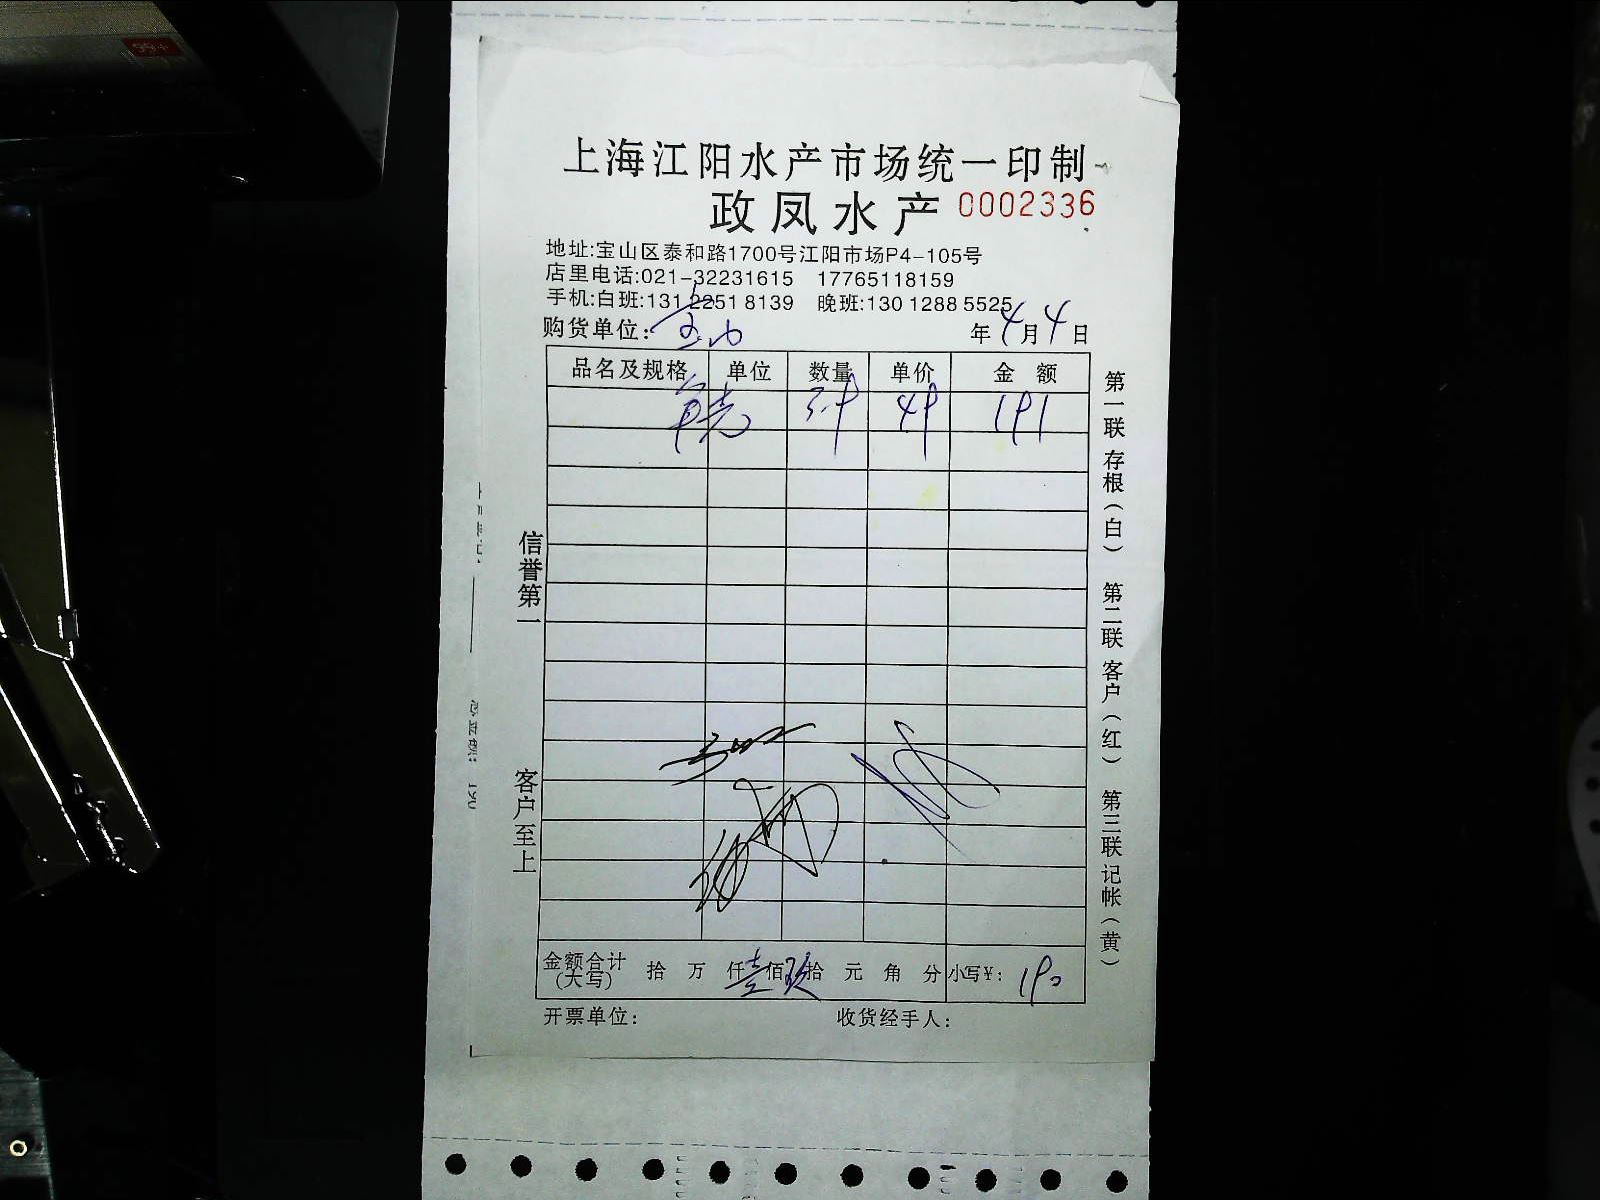 上海江阳水产市场统一印制
政凤水产 0002336
地址:宝山区泰和路1700号江阳市场P4-105号
店里电话:021-32231615 17765118159
手机:白班:131 2251 8139 晚班:130 1288 5525
购货单位: 宝山 年 4 月 4 日
品名及规格 单位 数量 单价 金额
191
信誉第一
客户至上
第一联 存根（白） 第二联 客户（红） 第三联 记帐（黄）
金额合计(大写) 拾 万 仟 壹 佰 玖 拾 元 角 分 小写¥: 190
开票单位: 收货经手人:
99+